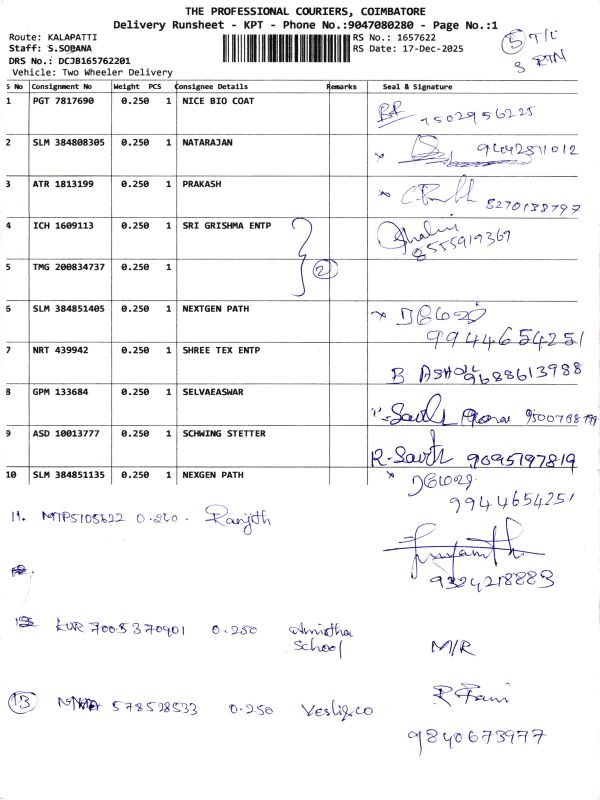 THE PROFESSIONAL COURIERS, COIMBATORE
Delivery Runsheet - KPT - Phone No.:9047080280 - Page No.:1
Route: KALAPATTI
RS No.: 1657622
Staff: S.SOBANA
RS Date: 17-Dec-2025
DRS No.: DCJB165762201
Vehicle: Two Wheeler Delivery
5 T/C
8 RTN
S No Consignment No Weight PCS Consignee Details Remarks Seal & Signature
1 PGT 7817690 0.250 1 NICE BIO COAT
7502956225
2 SLM 384808305 0.250 1 NATARAJAN
3 ATR 1813199 0.250 1 PRAKASH
8270138797
4 ICH 1609113 0.250 1 SRI GRISHMA ENTP
8555919367
5 TMG 200834737 0.250 1
2
6 SLM 384851405 0.250 1 NEXTGEN PATH
9944654251
7 NRT 439942 0.250 1 SHREE TEX ENTP
B ASHOK 9688613988
8 GPM 133684 0.250 1 SELVAEASWAR
9 ASD 10013777 0.250 1 SCHWING STETTER
9095197819
10 SLM 384851135 0.250 1 NEXGEN PATH
9944654251
11. MTP5105622 0.250. Ranjith
KUR 7005370901 0.250 Amirtha School M/R
13 578528533 0.250
9840673977